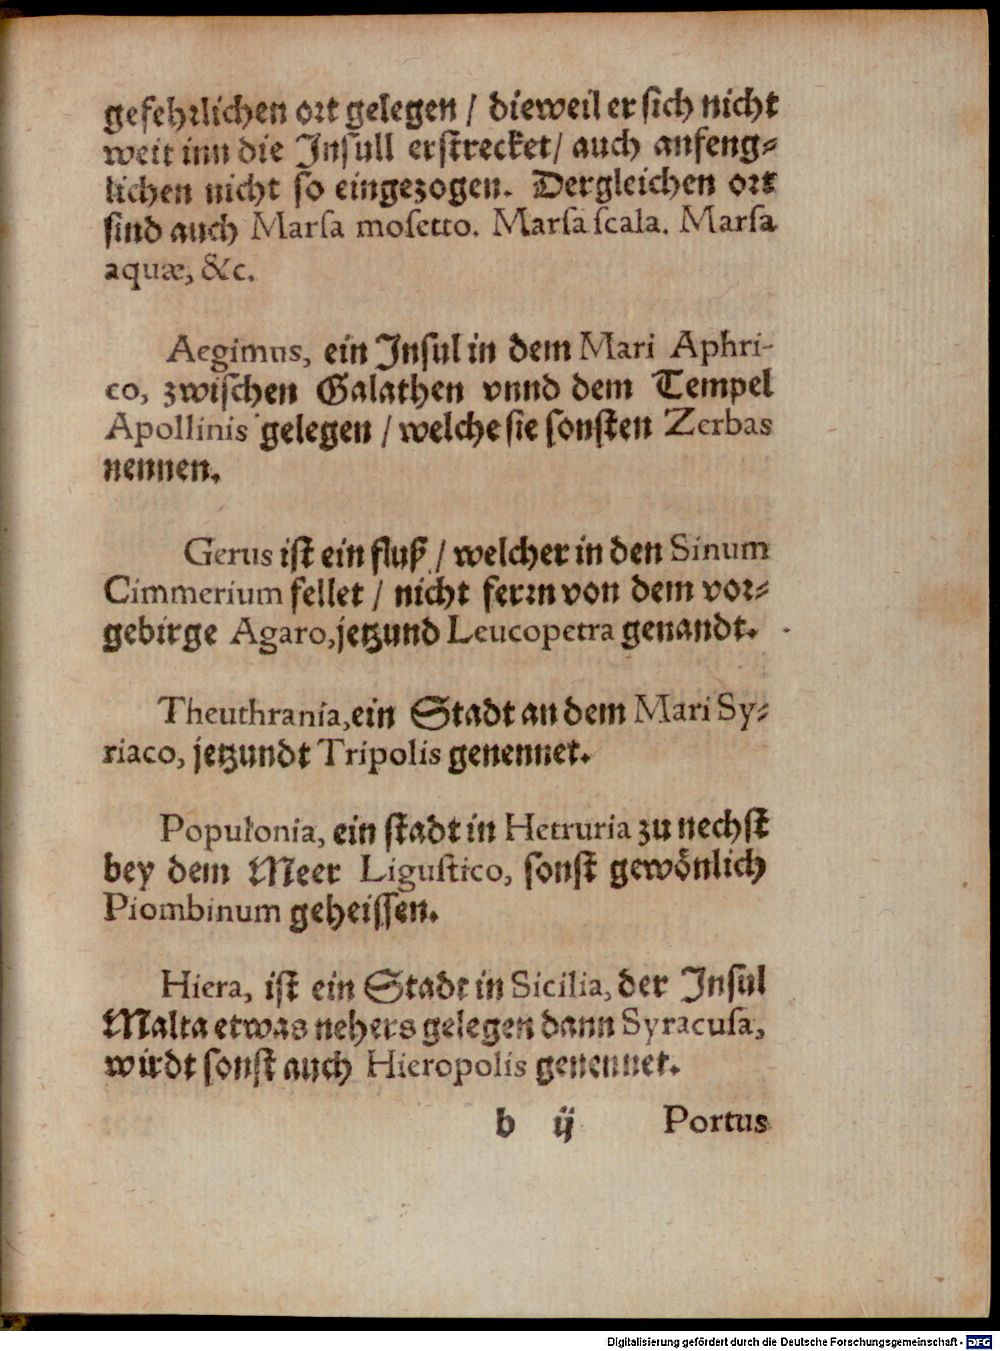 gefehrlichen ort gelegen / dieweil er sich nicht
weit inn die Insull erstrecket / auch anfeng⸗
lichen nicht so eingezogen. Dergleichen ort
sind auch Marsa mosetto. Marsa scala. Marsa
aquæ, &c.
Aegimus, ein Insul in dem Mari Aphri-
co, zwischen Galathen vnnd dem Tempel
Apollinis gelegen / welche sie sonsten Zerbas
nennen.
Gerus ist ein fluß / welcher in den Sinum
Cimmerium fellet / nicht ferrn von dem vor⸗
gebirge Agaro, jetzund Leucopetra genandt.
Theuthrania, ein Stadt an dem Mari Sy⸗
riaco, jetzundt Tripolis genennet.
Populonia, ein stadt in Hetruria zu nechst
bey dem Meer Ligustico, sonst gewönlich
Piombinum geheissen.
Hiera, ist ein Stadt in Sicilia, der Insul
Malta etwas nehers gelegen dann Syracusa,
wirdt sonst auch Hieropolis genennet.
b ij Portus
Digitalisierung gefördert durch die Deutsche Forschungsgemeinschaft - DFG